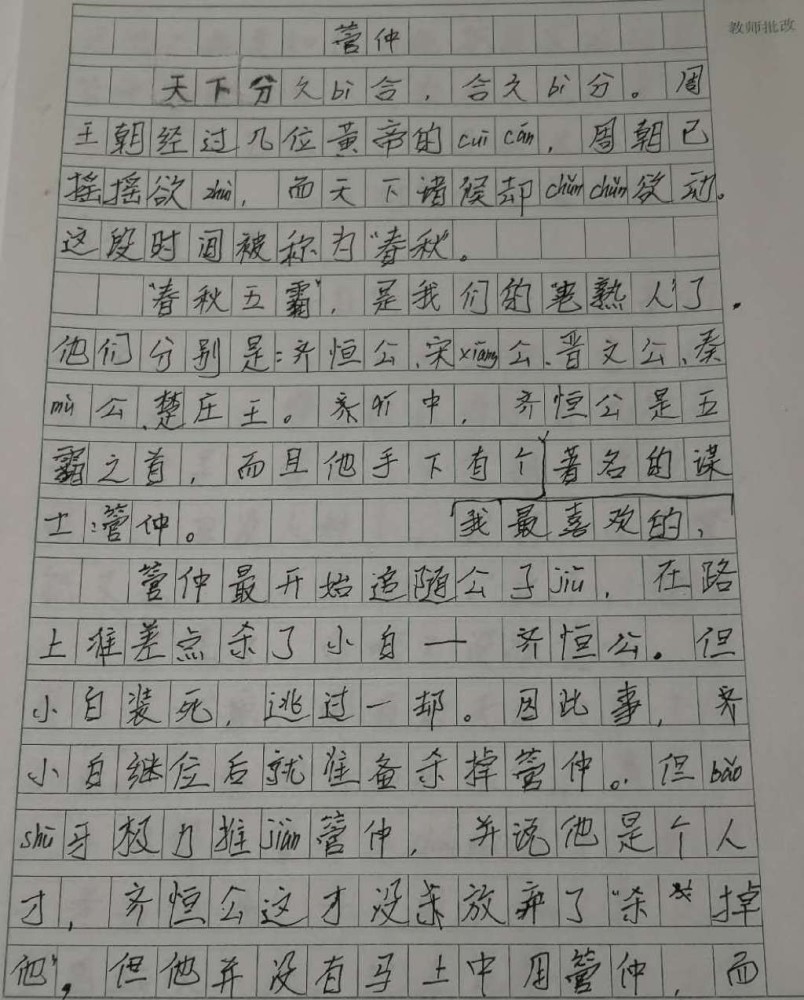 教师批改
管仲
天下分久bì合，合久bì分。周
王朝经过几位黄帝的cuī cán，周朝已
摇摇欲zhuì，而天下诸侯却chǔn chǔn欲动。
这段时间被称为“春秋”。
“春秋五霸”，是我们的“老熟人”了。
他们分别是：齐恒公、宋xiāng公、晋文公、秦
mù公、楚庄王。其中，齐恒公是五
霸之首，而且他手下有个著名的谋
士：管仲。我最喜欢的，
管仲最开始追随公子jiū，在路
上准差点杀了小白一齐恒公。但
小白装死，逃过一却。因此事，齐
小白继位后就准备杀掉管仲。但bào
shū牙极力推jiàn管仲，并说他是个人
才，齐恒公这才没杀放弃了“杀掉
他”，但他并没有马上中用管仲，而